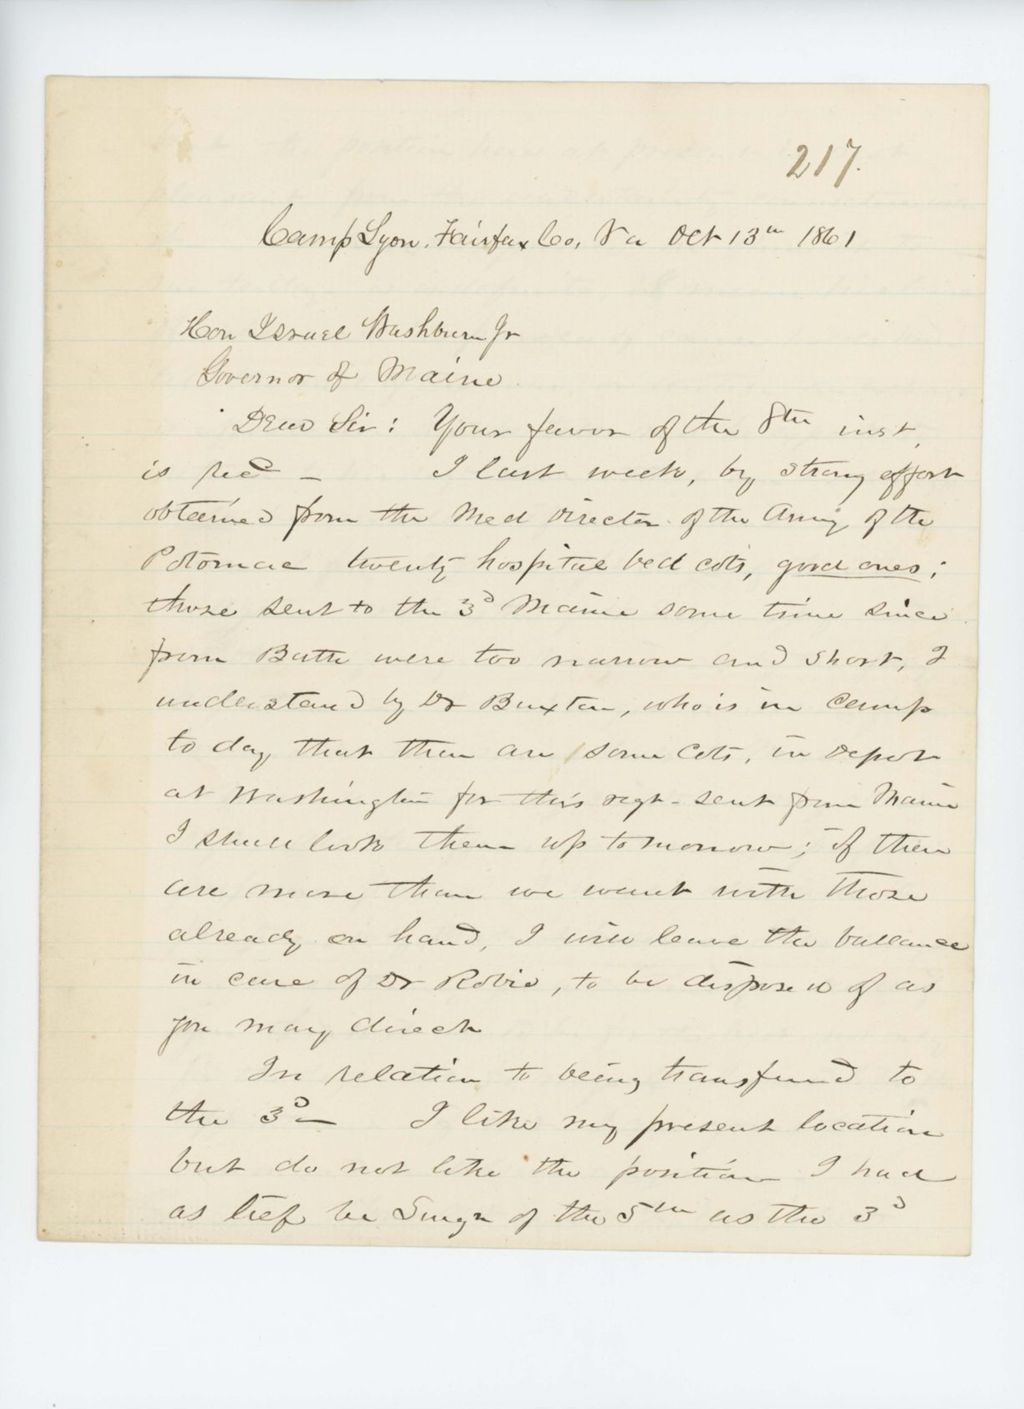 217.
Camp Lyon, Fairfax Co, Va Oct 13th 1861
Hon Israel Washburn Jr
Governor of Maine
Dear Sir: Your favor of the 8th inst,
is recd — I last week, by strong effort
obtained from the Med Director of the Army of the
Potomac twenty hospital bed cots, good ones;
those sent to the 3d Maine some time since
from Bath were too narrow and short, I
understand by Dr Buxton, who is in camp
to day that there are some cots, in depot
at Washington for this regt - sent from Maine
I shall look them up tomorrow; if there
are more than we want with those
already on hand, I will leave the ballance
in care of Dr Robie, to be disposed of as
you may direct
In relation to being transferred to
the 3d — I like my present location
but do not like the position I had
as lief be Surgn of the 5th as the 3d